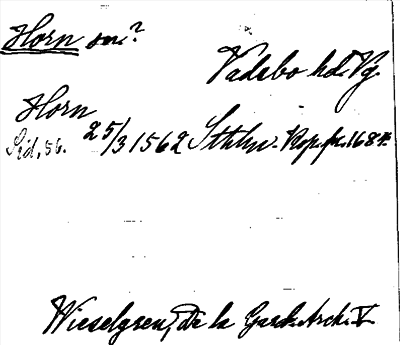 Horn sn?
Vadsbo hd. Vg.
Horn
Sid. 56. 25/3 1562 Sthlm. Kop. fr. 1684.
Wieselgren, De la Gard. Arch. V